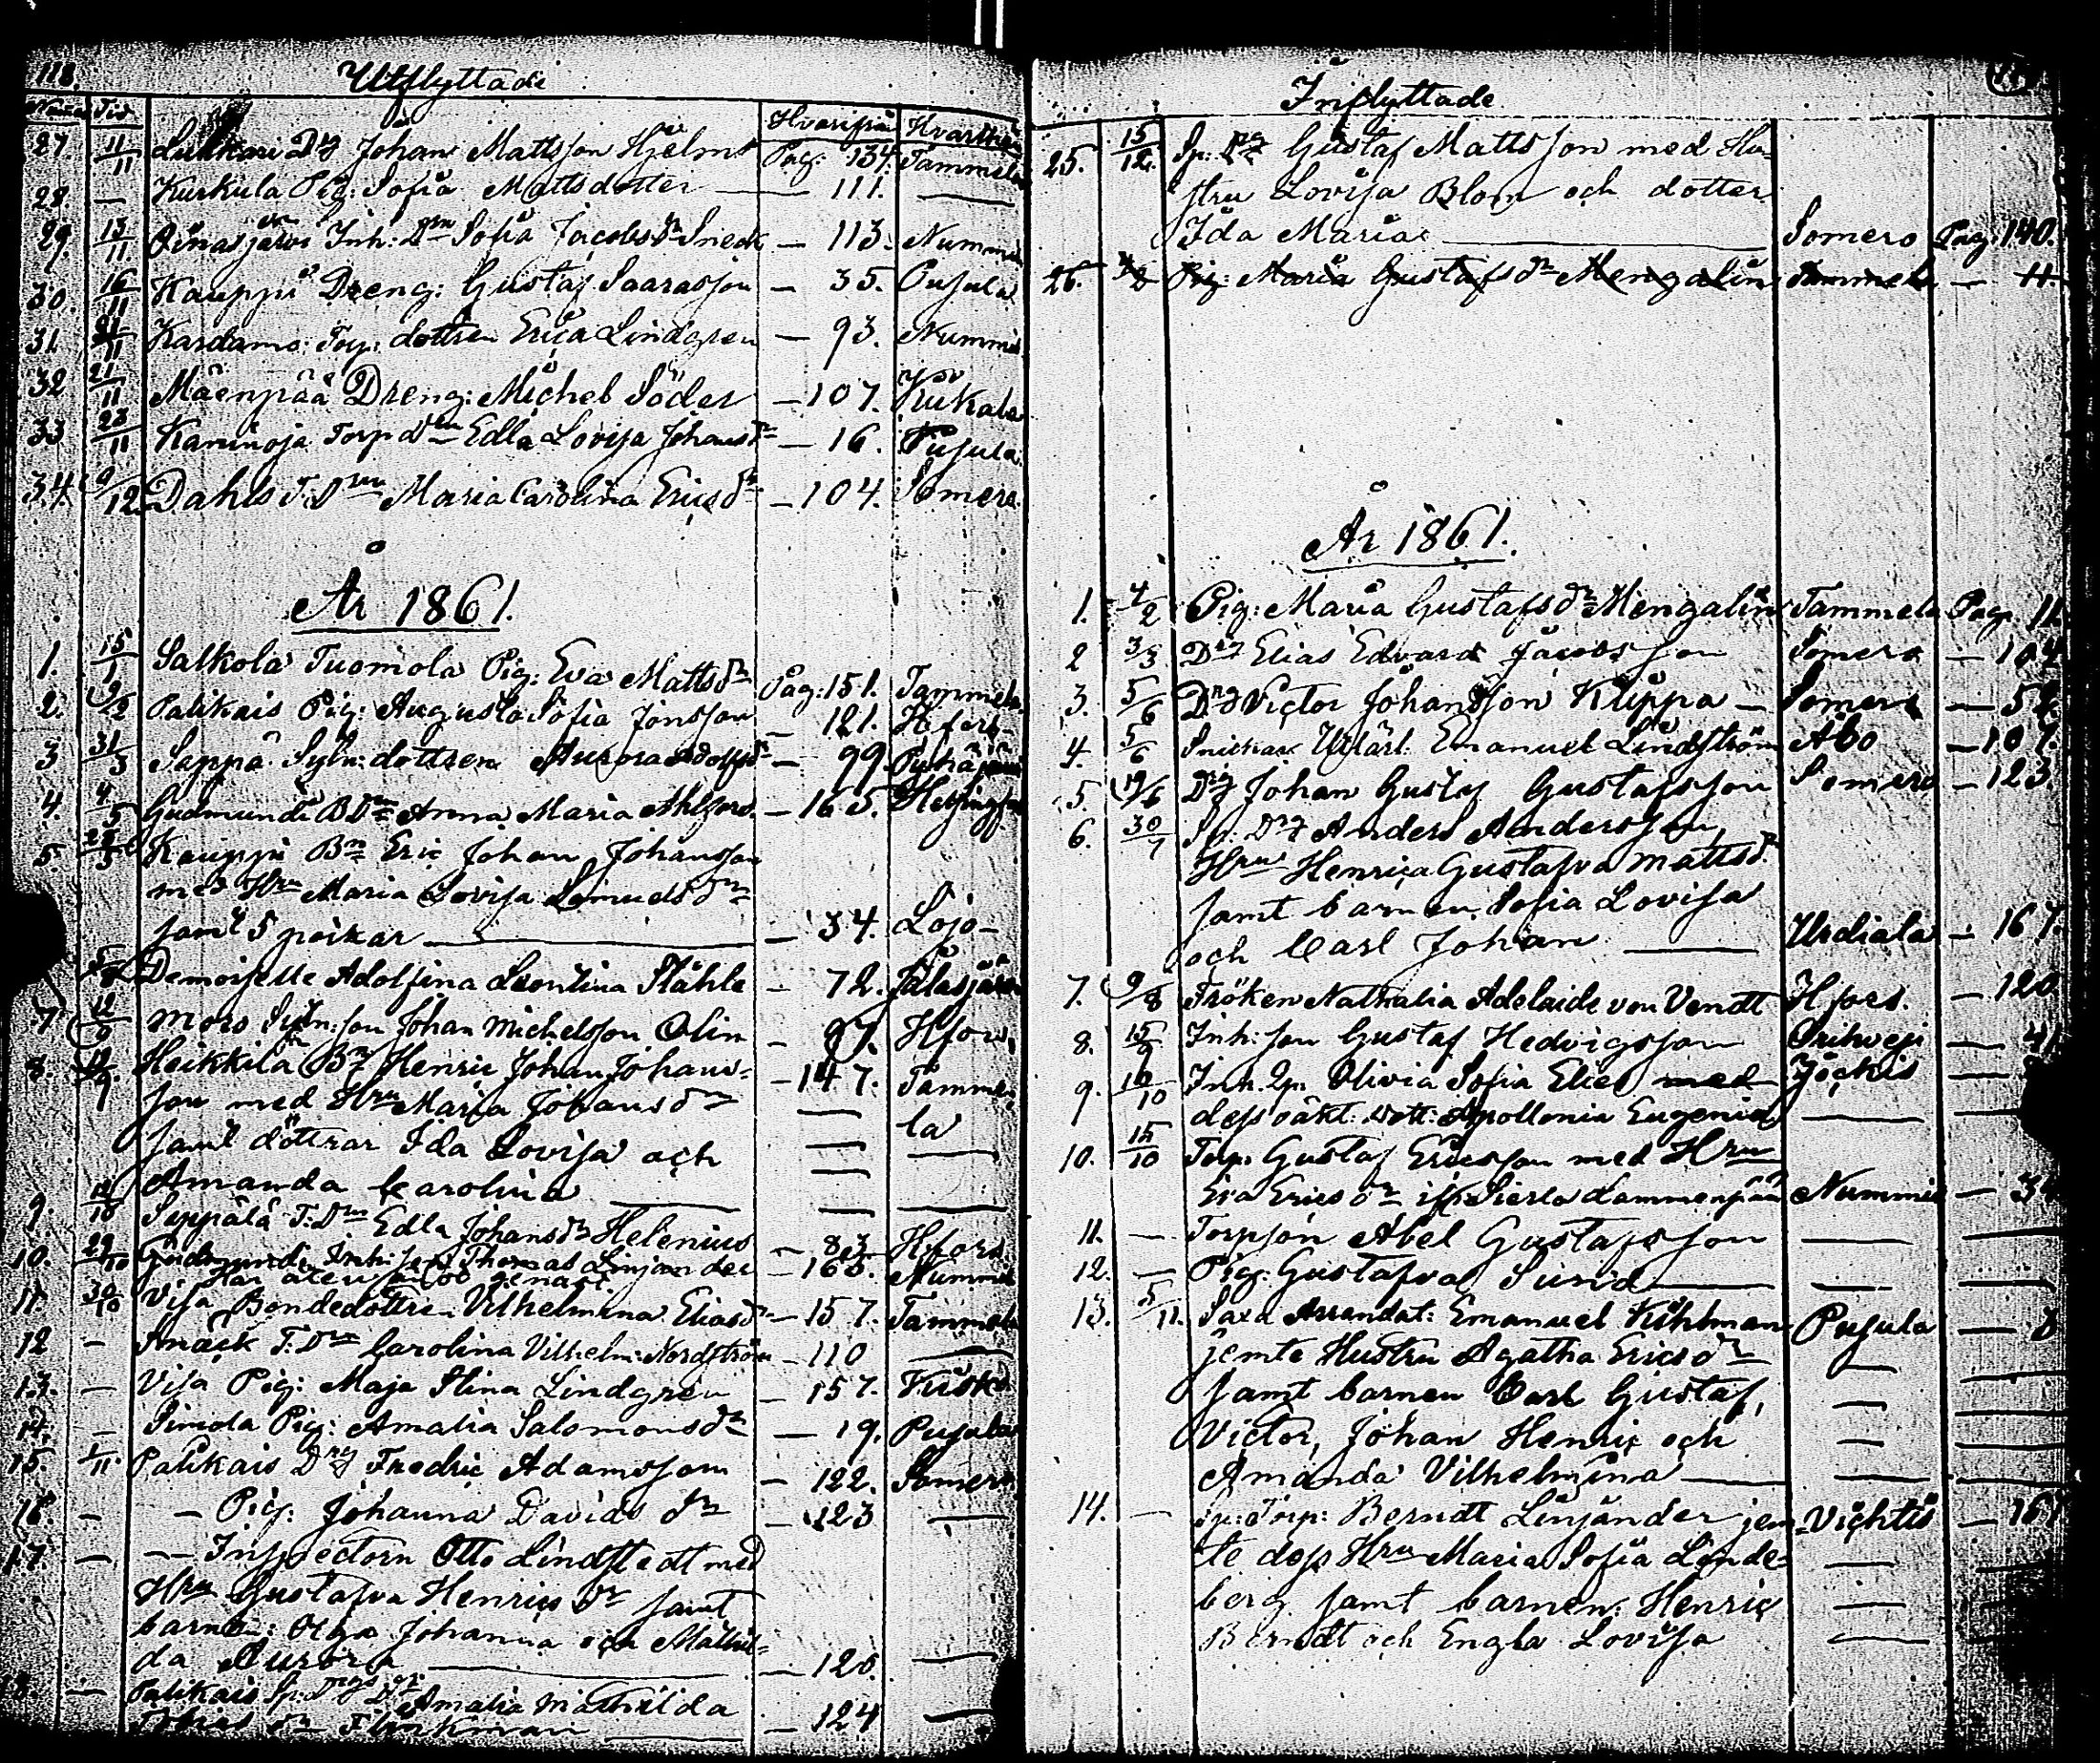 118.
Utflyttade
Hvarifrån Hvarthän
27. 11/11 Lukkari Drg Johan Mattsson Hjelm Pag: 134. Tammela
28. — Kurkula Pig: Sofia Mattsdotter — 111. —
29. 13/11. Oinasjärvi Inh: Drn Sofia Jacobsdr — 113. Nummis
30. 16/11 Kauppi Dreng: Gustaf Saarasson — 35. Pusula
31. 21/11 Kardamo: Torp: dottren Erica Lindgren — 93. Nummis
32 21/11 Mäenpää Dreng: Michel Söder — 107. Kiikala
33 23/11 Kaminoja Torp Drn Edla Lovisa Johansdr — 16. Pusula.
34. 9/12 Dahls T. Drn Maria Carolina Ericsdr — 104. Somero.
År 1861.
1. 15/1 Salkola Tuomola Pig: Eva Mattsdr Pag: 151. Tammela
2. 9/2 Palikais Pig: Augusta Sofia Jonsson — 121. Hfors
3 31/3 Seppä Sytn: dottren Aurora Adolfsdr — 99. Pyhäjärvi
4. 4/5 Gudmundi B Drn Anna Maria Ahlfors. — 165. Helsingfors
5. 28/5 Kauppi Bn Eric Johan Johansson
med Hru Maria Lovisa
samt 5 poikar — 34. Lojo
Demoiselle Adolfina Leontina Ståhle — 72. Jalasjärvi
7 12/9 Mors Sytn: son Johan Michelsson Olin — 97. Hfors,
8. Heikkilä Bn Henric Johan Johans- — 147. Tamme,
son med Hru Maria Johansdr — la
samt döttrar Ida Lovisa och — —
Amanda Carolina — — —
9. 14/10 Seppälä T: Drn Edla Johansdr Helenius — 83 Hfors.
10. 29/10 Gudmundi Inh: son Thomas Linjander — 165. Nummis
Har återvändt genast.
11. 30/10 Visa Bondedottren Vilhelmina Eliasdr — 157. Tammela
12 — Smäck T: Drn Carolina Vilhelm: Nordström — 110 —
13. — Visa Pig: Maja Stina Lindgren — 157. Kisko
14. — Simola Pig: Amalia Salomonsdr — 19. Pusula
15. 1/11 Palikais Drg Fredric Adamsson — 122. Somero
16. — — Pig: Johanna Davidsdr — 123 —
17. — — Inspectorn Otto Lindstedt med
Hru Gustafva Henricsdr samt
barnen: Olga Johanna och Mathil-
da Aurora — 120. —
18. — Palikais Sp: Drgs Dr Amalia Mathilda
— 124 —
Inflyttade
25. 15/12. Sp: Drg Gustaf Mattsson med Hu-
stru Lovisa Blom och dotter
Ida Maria — Somero Pag: 140.
26. 4/2 Pig: Maria Gustafsdr Mengalin Tammela — 11.
År 1861.
1. 4/2 Pig: Maria Gustafsdr Mengalin Tammela Pag. 11
2 3/3 Drg Elias Edvard Jacobsson Somero — 104
3. 5/6 Drg Victor Johansson Kuppa — Somero — 52
4. 5/6 Snickar Utlärl: Emanuel Lindström Åbo — 107.
5. 19/6 Drg Johan Gustaf Gustafsson Somero — 123.
6. 30/7 Sp: Drg Anders Andersson,
Hru Henrica Gustafva Mattsdr
samt barnen Sofia Lovisa
och Carl Johan — Urdiala — 167.
7. 9/8 Fröken Nathalia Adelaide von Vendt Hfors. — 120
8. 15/9 Inh: son Gustaf Hedvigsson — 41.
9. 10/10 Inh. Qp. Olivia Sofia Elies med Jockis —
dess oäkt: dott: Apollonia Eugenia — —
10. 15/10 Torp. Gustaf Ericsson med Hru
Eva Ericsdr Nummis — 34
11. — Torpson Abel Gustafsson — —
12. — Pig: Gustafva Sund — —
13. 5/11. Saxa Arrendat: Emanuel Kihlman Pusula —
jemte Hustru Agatha Ericsdr — —
samt barnen Carl Gustaf, — —
Victor, Johan Henric och — —
Amanda Vilhelmina — — —
14. — Sp: Torp: Berndt Linjander jem- Vichtis — 167
te dess Hru Maria Sofia Linde- — —
berg samt barnen: Henric — —
Berndt och Engla Lovisa — —